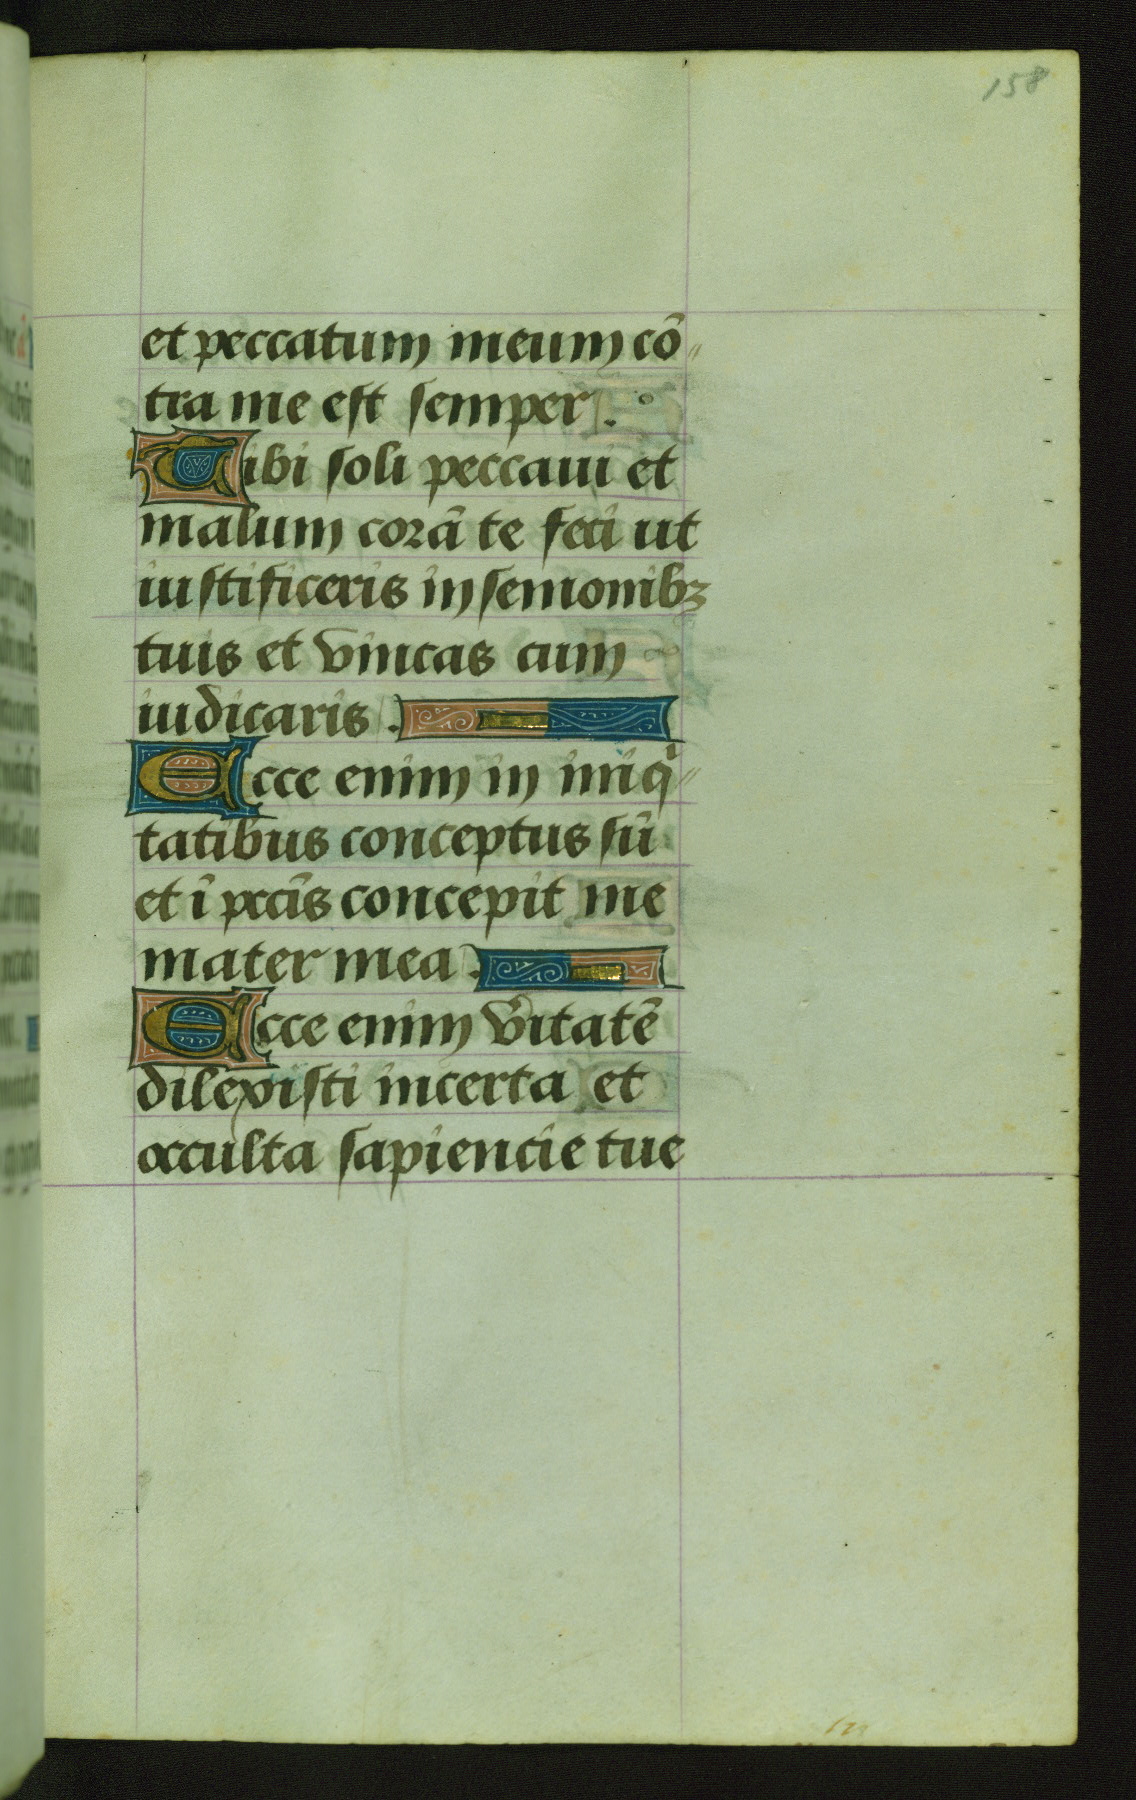 158
et peccatum meum cō〃
tra me est semper.
Tibi soli peccaui et
malum corā te feci ut
iustificeris in semonibꝫ
tuis et vincas cum
iudicaris.
Ecce enim in iniqͥ〃
tatibus conceptus sū
et ī pctīs concepit me
mater mea.
Ecce enim v̄itatē
dilexisti incerta et
occulta sapiencie tue